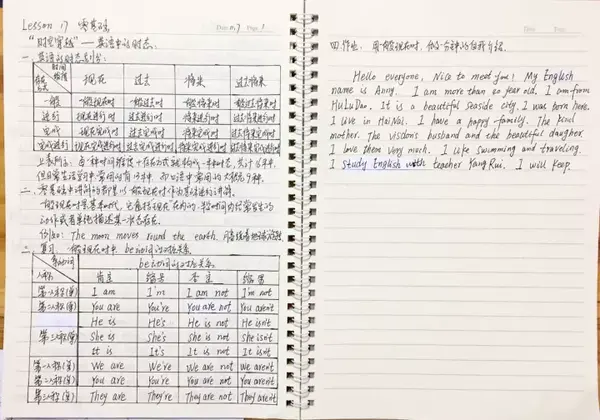 Lesson 17 零基础
"时空穿越"——英语中的时态
一、英语的时态列表:
时间 现在 过去 将来 过去将来
一般 一般现在时 一般过去时 一般将来时 一般过去将来时
进行 现在进行时 过去进行时 将来进行时 过去将来进行时
完成 现在完成时 过去完成时 将来完成时 过去将来完成时
完成进行 现在完成进行时 过去完成进行时 将来完成进行时 过去将来完成进行时
动作或者单纯描述某一状态存在。
例如: The moon moves round the earth.
复习: 一般现在时中 be动词的对应关系。
be动词的对应关系
人称 肯定 缩写 否定 缩写
第一人称(单) I am I'm I am not I'm not
第二人称(单) You are You're You are not You aren't
He is He's He is not He isn't
第三人称(单) She is She's She is not She isn't
It is It's It is not It isn't
第一人称(复) We are We're We are not We aren't
第二人称(复) You are You're You are not You aren't
第三人称(复) They are They're They are not They aren't
四.作业: 用一般现在时,做一分钟的自我介绍。
Hello everyone, Nice to meet you! My English
name is Anny. I am more than 30 year old. I am from
HuLuDao. It is a beautiful seaside city. I was born here.
I live in HaiNai. I have a happy family. The kind
mother. The visdons husband and the beautiful daugher.
I love them very much. I like swimming and traveling.
I study English with teacher Yang Rui. I will keep.